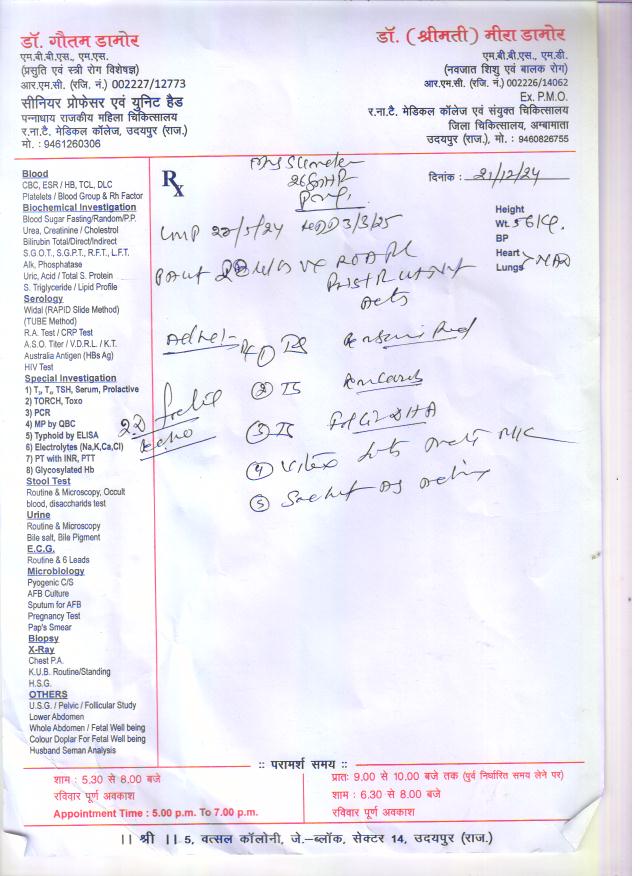 डॉ. गौतम डामोर
एम.बी.बी.एस., एम.एस.
(प्रसुति एवं स्त्री रोग विशेषज्ञ)
आर.एम.सी. (रजि. नं.) 002227/12773
सीनियर प्रोफेसर एवं युनिट हैड
पन्नाधाय राजकीय महिला चिकित्सालय
र.ना.टै. मेडिकल कॉलेज, उदयपुर (राज.)
मो. : 9461260306
डॉ. (श्रीमती) मीरा डामोर
एम.बी.बी.एस., एम.डी.
(नवजात शिशु एवं बालक रोग)
आर.एम.सी. (रजि. नं.) 002226/14062
Ex. P.M.O.
र.ना.टै. मेडिकल कॉलेज एवं संयुक्त चिकित्सालय
जिला चिकित्सालय, अम्बामाता
उदयपुर (राज.), मो. : 9460826755
Blood
CBC, ESR / HB, TCL, DLC
Platelets / Blood Group & Rh Factor
Biochemical Investigation
Blood Sugar Fasting/Random/P.P.
Urea, Creatinine / Cholestrol
Bilirubin Total/Direct/Indirect
S.G.O.T., S.G.P.T., R.F.T., L.F.T.
Alk. Phosphatase
Uric, Acid / Total S. Protein
S. Triglyceride / Lipid Profile
Serology
Widal (RAPID Slide Method)
(TUBE Method)
R.A. Test / CRP Test
A.S.O. Titer / V.D.R.L. / K.T.
Australia Antigen (HBs Ag)
HIV Test
Special Investigation
1) T₃, T₄, TSH, Serum, Prolactive
2) TORCH, Toxo
3) PCR
4) MP by QBC
5) Typhoid by ELISA
6) Electrolytes (Na,K,Ca,Cl)
7) PT with INR, PTT
8) Glycosylated Hb
Stool Test
Routine & Microscopy, Occult
blood, disaccharids test
Urine
Routine & Microscopy
Bile salt, Bile Pigment
E.C.G.
Routine & 6 Leads
Microbiology
Pyogenic C/S
AFB Culture
Sputum for AFB
Pregnancy Test
Pap's Smear
Biopsy
X-Ray
Chest P.A.
K.U.B. Routine/Standing
H.S.G.
OTHERS
U.S.G. / Pelvic / Follicular Study
Lower Abdomen
Whole Abdomen / Fetal Well being
Colour Doplar For Fetal Well being
Husband Seman Analysis
Rx
दिनांक : 21/12/24
LMP 22/5/24 3/3/25
Height
Wt. 56 Kg.
BP
Heart
Lungs
2D
echo
②
③
④
⑤ Sachet
:: परामर्श समय ::
शाम : 5.30 से 8.00 बजे
रविवार पूर्ण अवकाश
Appointment Time : 5.00 p.m. To 7.00 p.m.
प्रातः 9.00 से 10.00 बजे तक (पुर्व निर्धारित समय लेने पर)
शाम : 6.30 से 8.00 बजे
रविवार पूर्ण अवकाश
।। श्री ।। 5, वत्सल कॉलोनी, जे.–ब्लॉक, सेक्टर 14, उदयपुर (राज.)